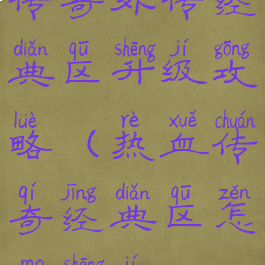 传奇外传经
diǎn qū shēng jí gōng
典区升级攻
lüè rè xuě chuán
略（热血传
qí jīng diǎn qū zěn
奇经典区怎
me shēng jí